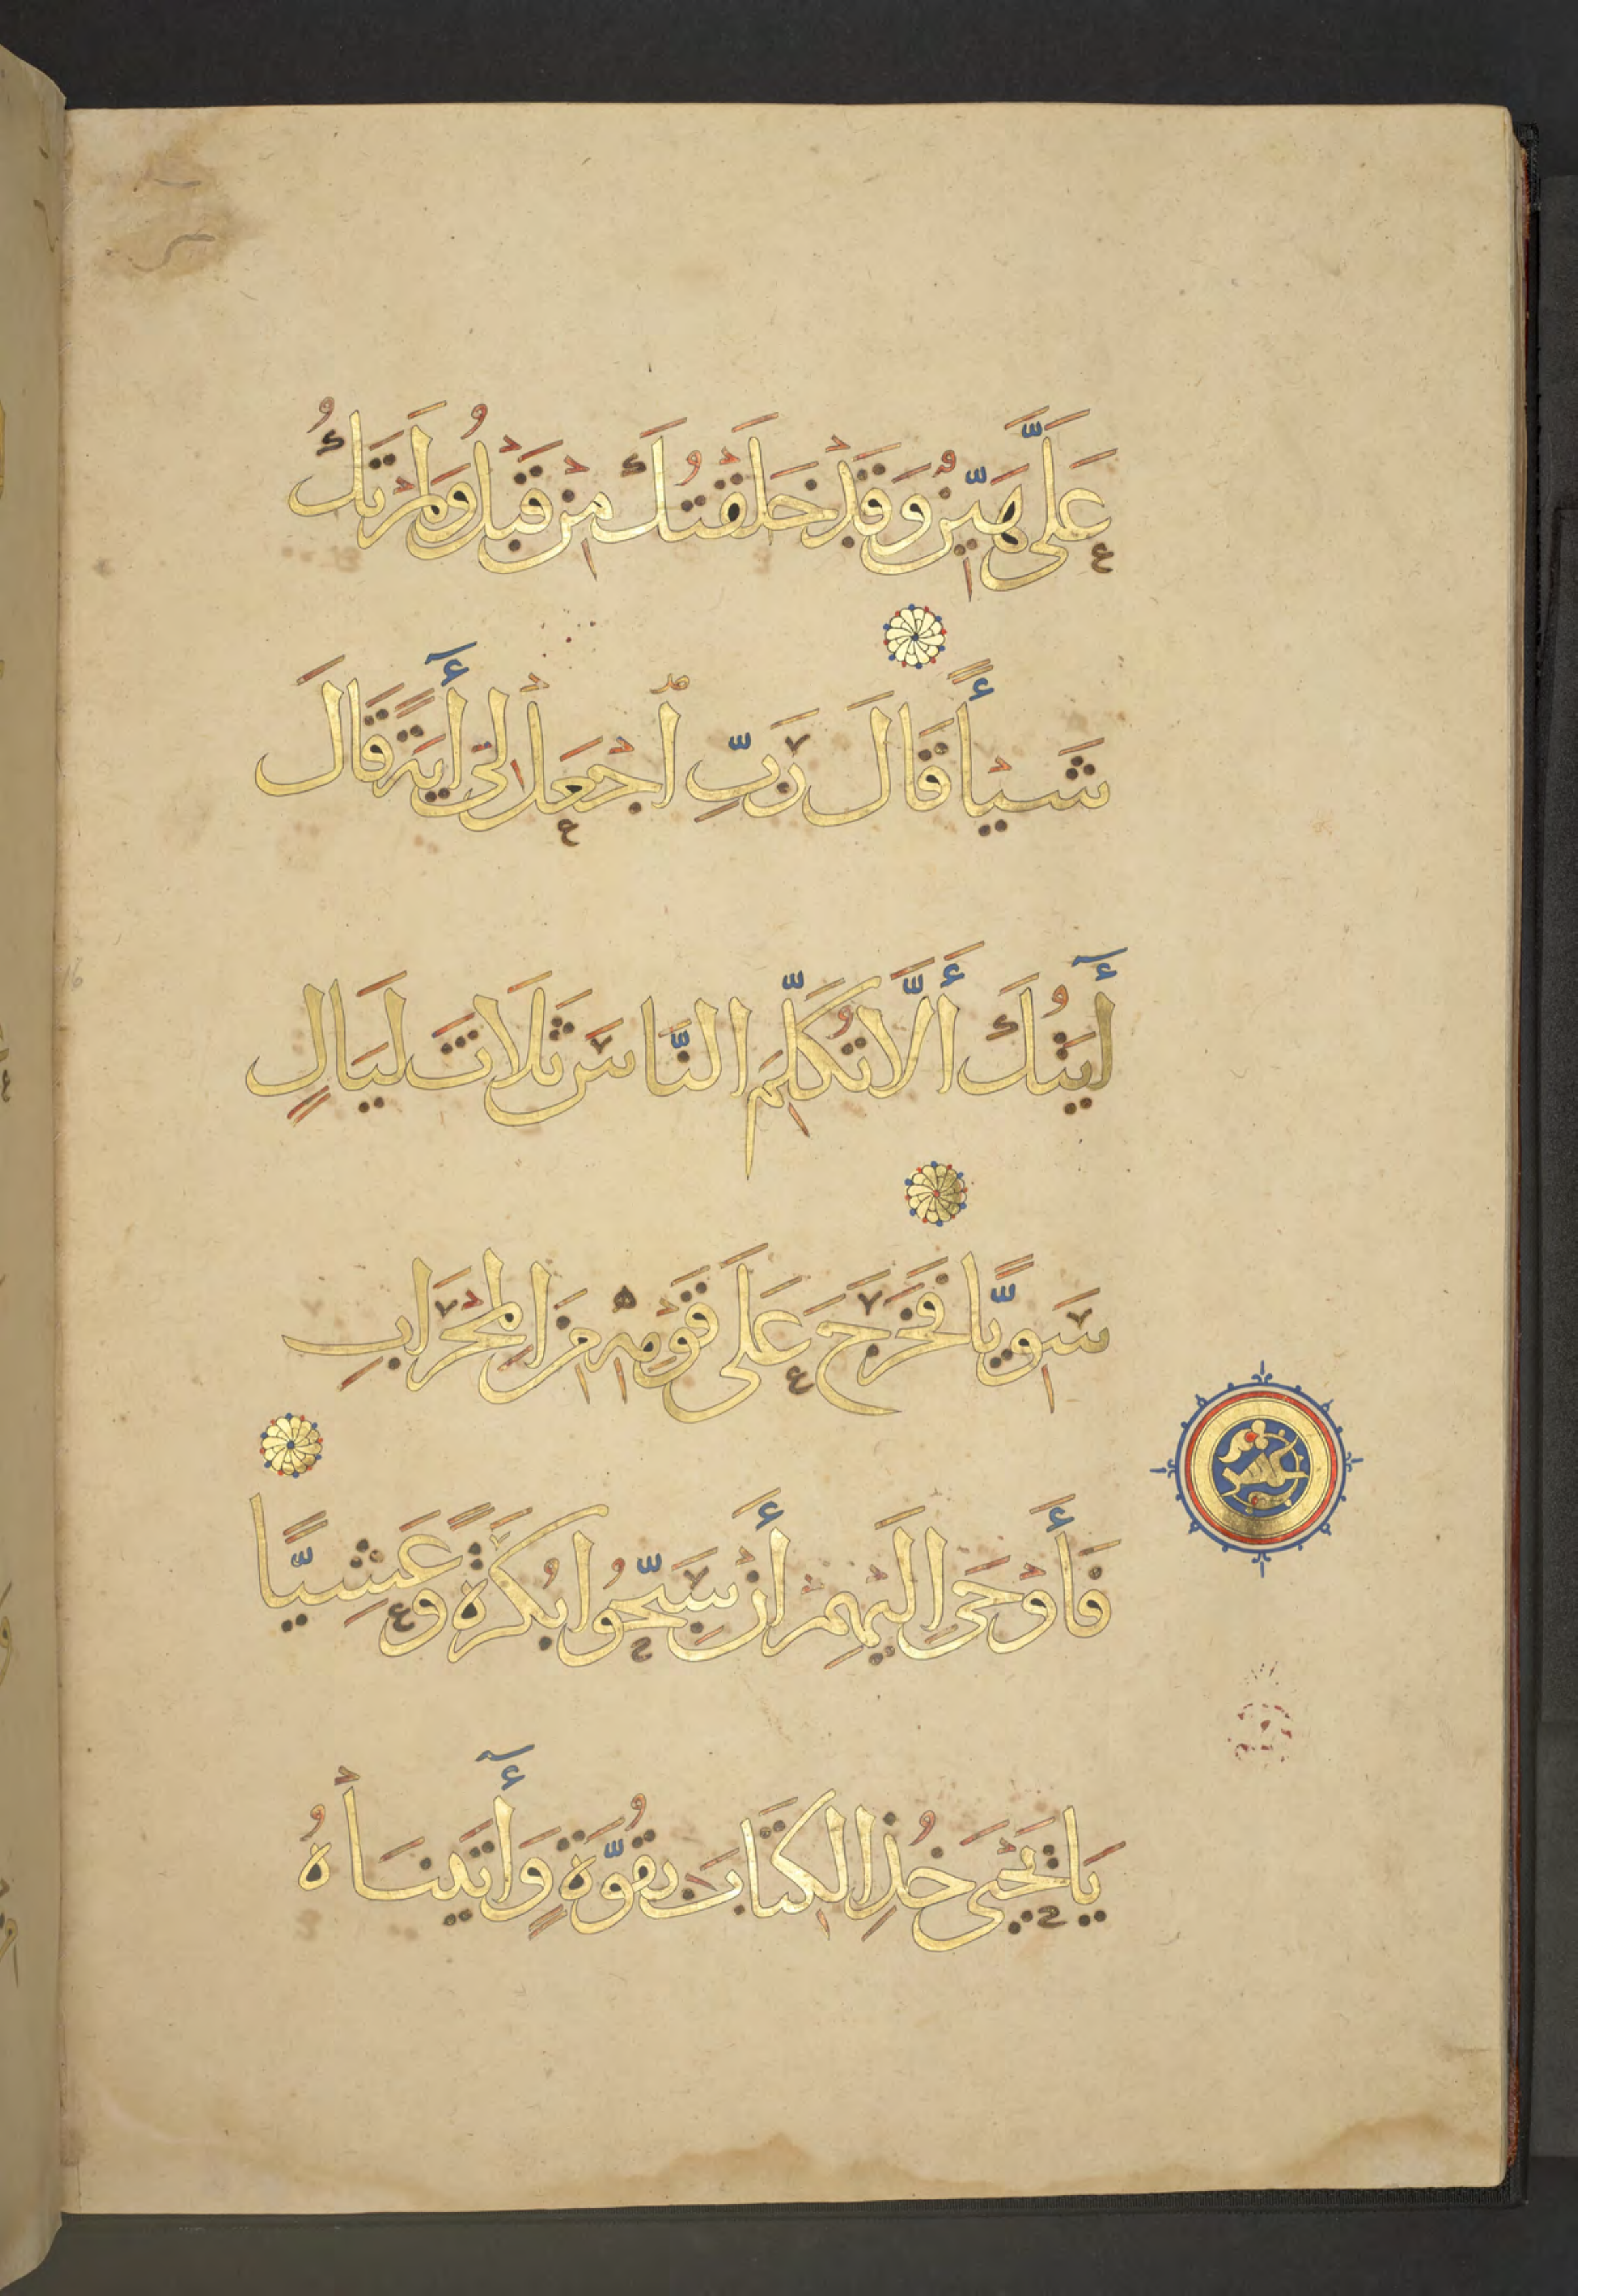 عَلَىَّ هَيِّنٌ وَقَدْ خَلَقْتُكَ مِنْ قَبْلُ وَلَمْ تَكُ
شَيْـأً قَالَ رَبِّ ٱجْعَلْ لِى أَٓيَةً قَالَ
أَٓيَتُكَ أَلَّا تُكَلِّمَ النَّاسَ ثَلَاثَ لَيَالٍ
سَوِيًّا فَخَرَجَ عَلَى قَوْمِهِ مِنَ الْمِحْرَابِ
فَأَوْحَى إِلَيْهِمْ أَنْ سَبِّحُوا بُكْرَةً وَعَشِيًّا
عشر
يَا يَحْيَى خُذِ الْكِتَابَ بِقُوَّةٍ وَأَٓتَيْنَـاْهُ